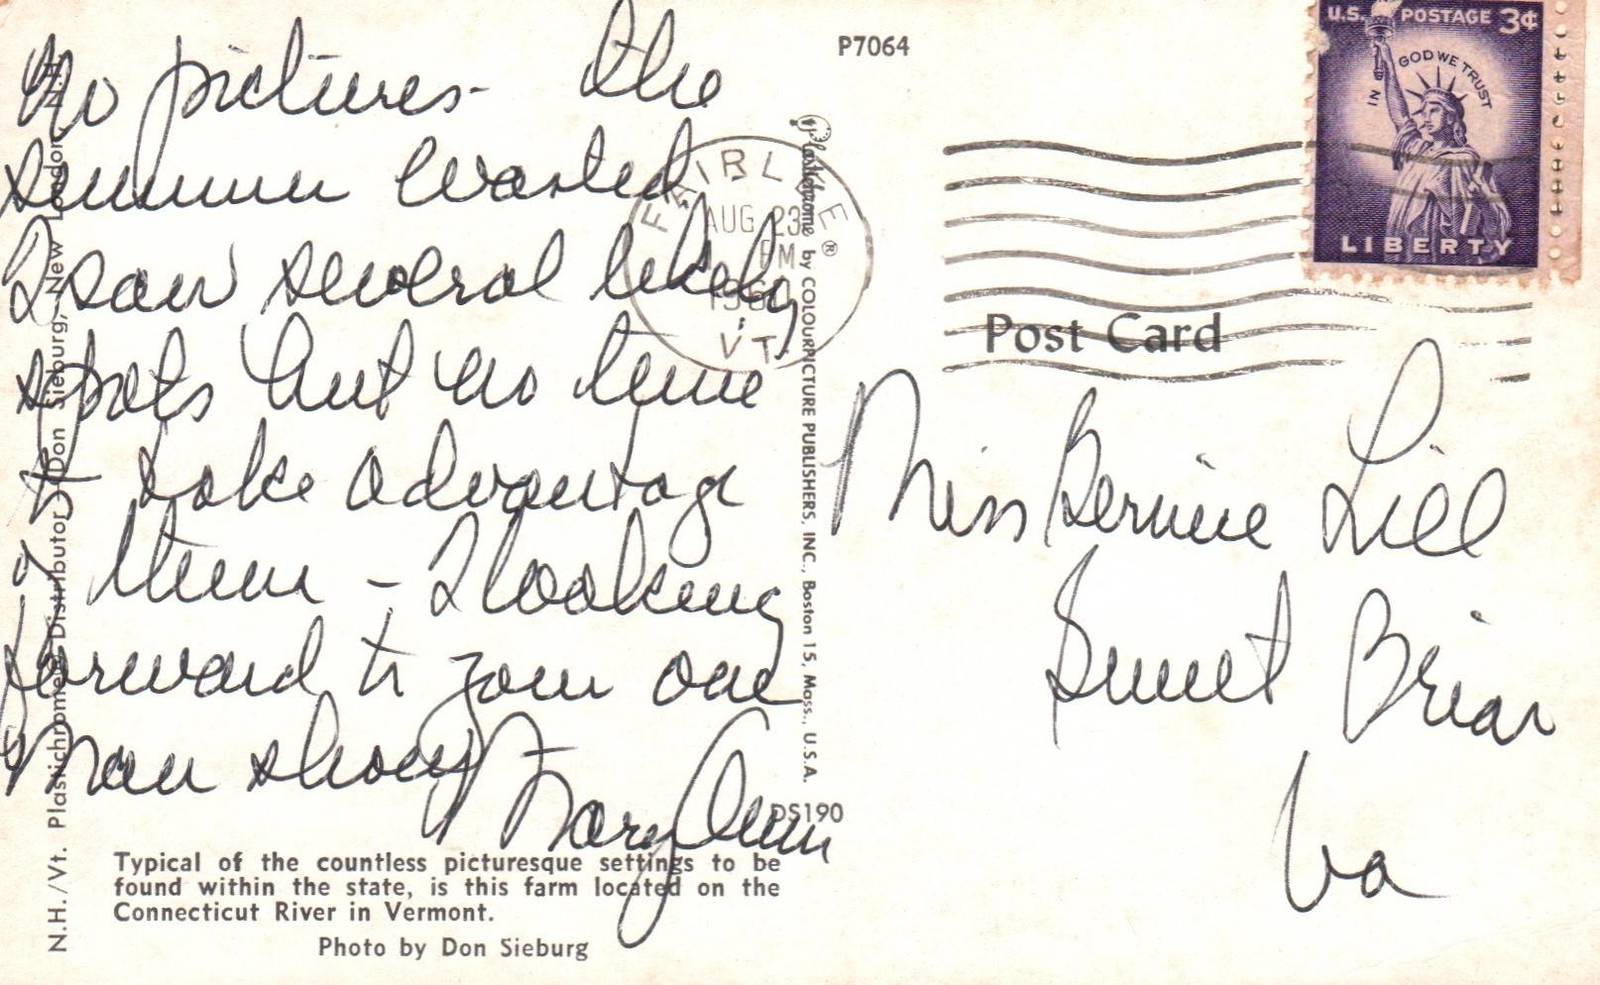 No pictures - the
summer wasted
I saw several likely
spots but no time
to take advantage
of them - I looking
forward to your one
man show
Mary Ann
Typical of the countless picturesque settings to be
found within the state, is this farm located on the
Connecticut River in Vermont.
Photo by Don Sieburg
N.H./Vt. Plastichrome Distributor, Don Sieburg, New London, N.H.
Plastichrome ® by COLOURPICTURE PUBLISHERS, INC., Boston 15, Mass., U.S.A.
DS190
P7064
FAIRLEE
AUG 23
PM
VT.
U.S. POSTAGE 3¢
IN GOD WE TRUST
LIBERTY
Post Card
Miss Bernice Lill
Sweet Briar
Va